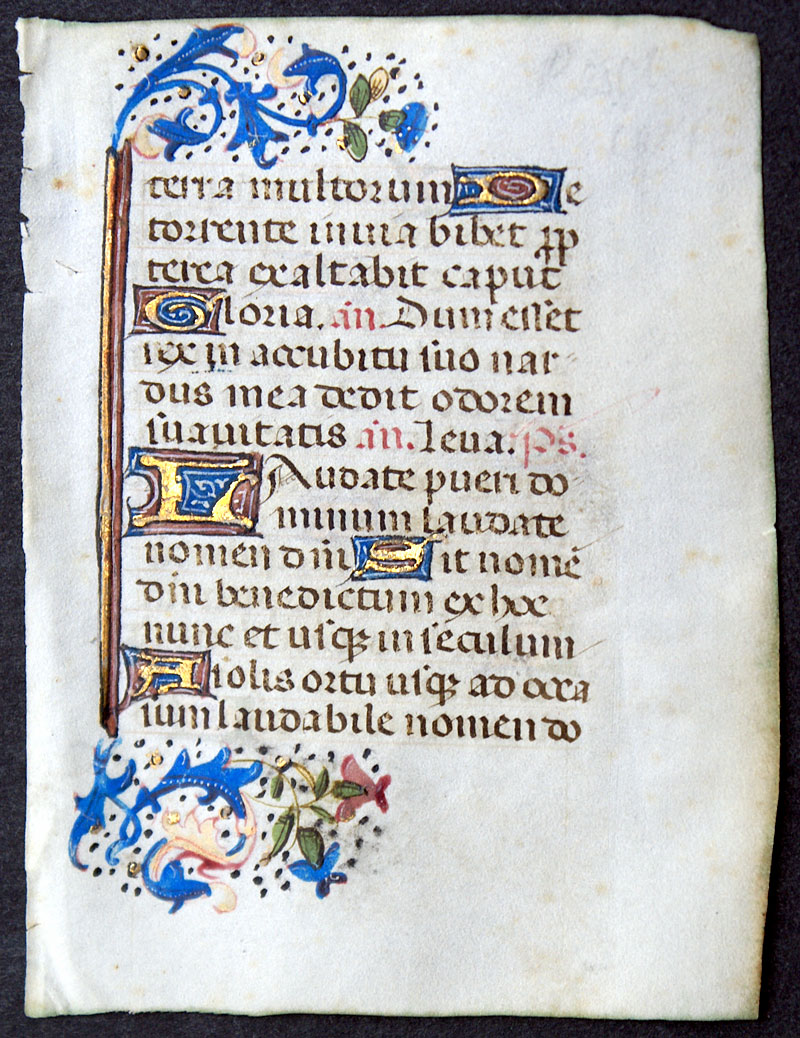 terra multorum De
torrente in uia bibet ꝓp
terea exaltabit caput
Gloria. an. Dum esset
rex in accubitu suo nar-
dus mea dedit odorem
suauitatis an. Leua. Ps.
LAudate pueri do
minum laudate
nomen dñi Sit nomē
dñi benedictum ex hoc
nunc et usqꝫ in seculum
A solis ortu usqꝫ ad occa
sum laudabile nomen do